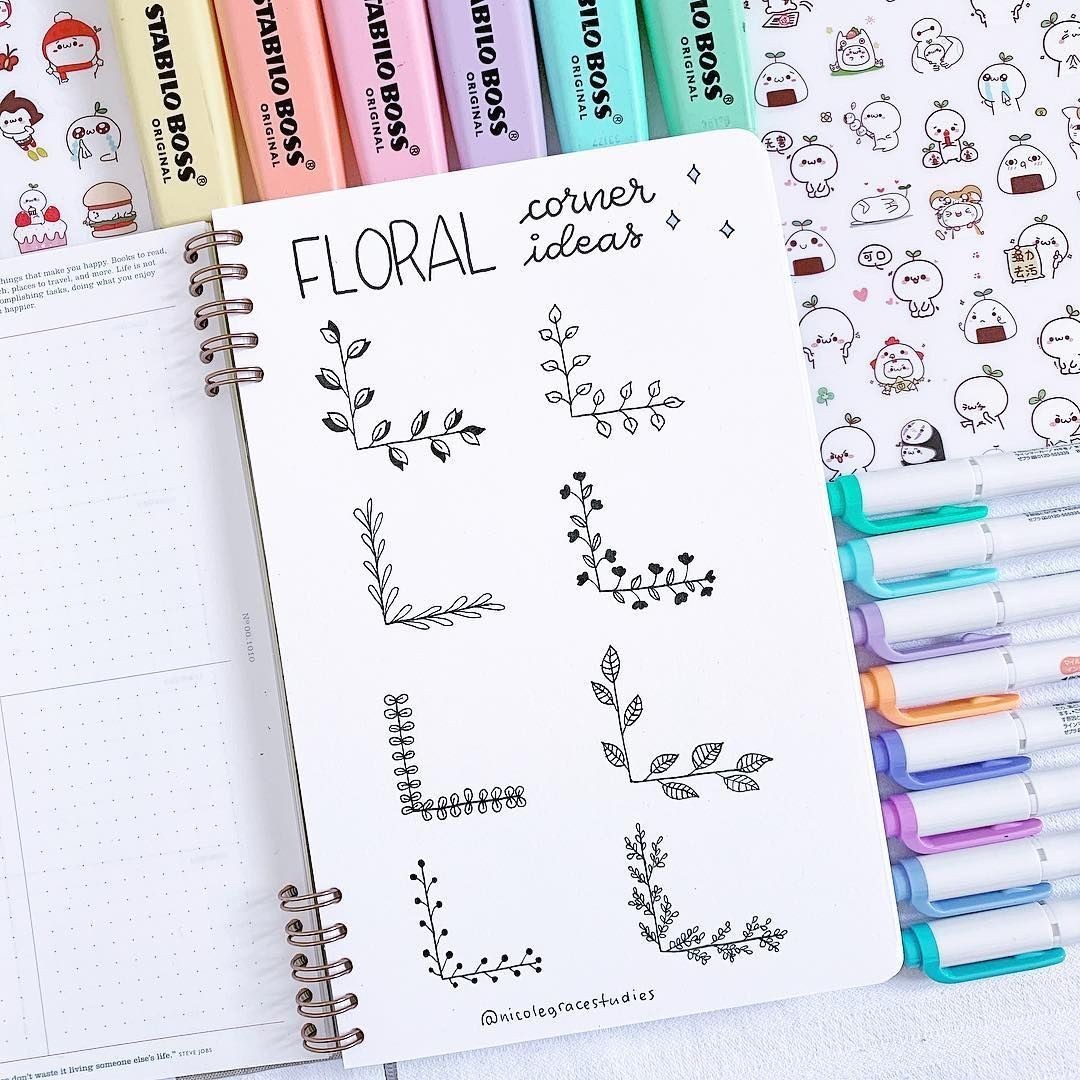 STABILO BOSS®
ORIGINAL
STABILO BOSS®
ORIGINAL
STABILO BOSS®
ORIGINAL
STABILO BOSS®
ORIGINAL
STABILO BOSS®
ORIGINAL
BOSS®
ORIGINAL
FLORAL corner
ideas
things that make you happy. Books to read,
places to travel, and more. Life is not
accomplishing tasks, doing what you enjoy
happier.
无害
可口
去污
@nicolegracestudies
don't waste it living someone else's life." STEVE JOBS